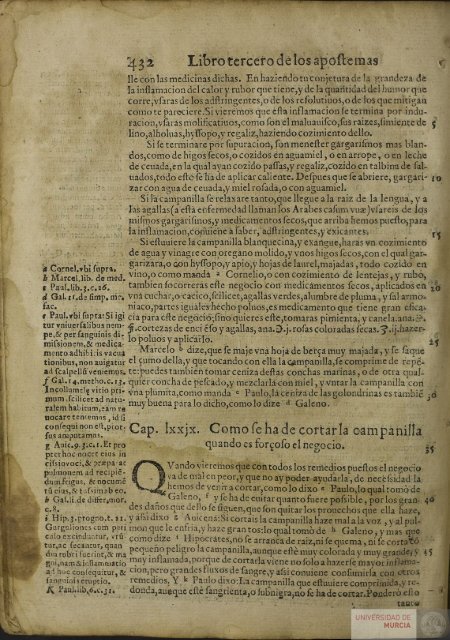 432 Libro tercero de los apostemas
lle con las medicinas dichas. En haziendo tu conjetura de la grandeza de
la inflamacion del calor y rubor que tiene, y de la quantidad del humor que
corre, vsaras de los adstringentes, o de los resolutiuos, o de los que mitigan
como te pareciere. Si vieremos que esta inflamacion se termina por indu-
racion, vsaras molificatiuos, como son el maluauisco, sus raizes, simiente de
lino, alholuas, hyssopo, y regaliz, haziendo cozimiento dello.
Si se terminare por supuracion, son menester gargarismos mas blan-
dos, como de higos secos, o cozidos en aguamiel, o en arrope, o en leche
de ceuada, en la qual ayan cozido passas, y regaliz, cozido en talbina de sal-
uados, todo esto se ha de aplicar caliente. Despues que se abriere, gargari-
zar con agua de ceuada, y miel rosada, o con aguamiel.
Si la campanilla se relaxare tanto, que llegue a la raiz de la lengua, y a
las agallas (a esta enfermedad llaman los Arabes casum vuæ) vsareis de los
mismos gargarismos, y medicamentos secos, que arriba hemos puesto, para
la inflamacion, conuiene a saber, adstringentes, y exicantes.
Si estuuiere la campanilla blanquecina, y exangue, haras vn cozimiento
de agua y vinagre con oregano molido, y vnos higos secos, con el qual gar-
garizara, o con hyssopo, y apio, y hojas de laurel, majadas, todo cozido en
vino, o como manda a Cornelio, o con cozimiento de lentejas, y rubo,
tambien socorreras este negocio con medicamentos secos, aplicados en
vna cuchar, o cacito, scilicet, agallas verdes, alumbre de pluma, y sal armo-
niaco, partes iguales hecho poluos, es medicamento que tiene gran efica-
cia para este negocio, sino quieres este, tomaras pimienta, y canela. ana.
cortezas de encienso y agallas, ana. rosas coloradas secas. hazer-
lo poluos y aplicarlo.
Marcelo b dize, que se maje vna hoja de berça muy majada, y se saque
el çumo della, y que tocando con ella la campanilla, se comprime de repē-
te: puedes tambien tomar ceniza destas conchas marinas, o de otra qual-
quier concha de pescado, y mezclarla con miel, y vntar la campanilla con
vna plumita, como manda c Paulo, la ceniza de las golondrinas es tambiē
muy buena para lo dicho, como lo dize d Galeno.
a Cornel. vbi supra.
b Marcel. lib. de med.
c Paul. lib. 3. c. 26.
d Gal. 11. de simp. me.
fac.
e Paul. vbi supra: Si igi
tur vniuersalibus nom-
pe, & per sanguinis di-
missionem, & medica-
mento adhibitis vacua
tionibus, non auigatur
ad scalpellū veniemus.
f Gal. 14. metho. c. 13.
Incolume sg vitio pri-
mum. scilicet ad natu-
ralem habitum, eam re
uocare tentemus, id si
consequi non est, pror-
sus amputamus.
g Auic. 9. 3. c. 1. Et pro
pter hoc nocet eius in
cissio voci, & præparat
pulmonem ad recipiē-
dum frigus, & nocumē
tū eius, & tussim ab eo.
h Gal. 11. de differ. mor.
c. 8.
i Hip. 3. progno. t. 21.
Gargulio nes cum peri
culo exciduntur, vrū
tur, ac secantur, quan
diu rubri fuerint, & ma
gni, nam & inflamatio
ad hoc consequitur, &
sanguinis eruptio.
K Paul. lib. 6. c. 31.
Cap. lxxjx. Como se ha de cortar la campanilla
quando es forçoso el negocio.
QVando vieremos que con todos los remedios puestos el negocio
va de mal en peor, y que no ay poder ayudarla, de necesidad la
hemos de venir a cortar, como lo dixo e Paulo, lo qual tomò de
Galeno, f y se ha de euitar quanto fuere possible, por los gran-
des daños que dello se siguen, que son quitar los prouechos que ella haze,
y assi dixo g Auicena: Si cortais la campanilla haze mal a la voz, y al pul-
mon que le enfria, y haze gran tos: lo qual tomò de h Galeno, y mas que
como dize i Hipocrates, no se arranca de raiz, ni se quema, ni se corta cō
pequeño peligro la campanilla, aunque estè muy colorada y muy grande, y
muy inflamada, porque de cortarla viene no solo a hazerse mayor inflama-
cion, pero grandes fluxos de sangre, y assi conuiene consumirla con otros
remedios, Y k Paulo dixo: La campanilla que estuuiere comprimida, y re-
donda, aunque estè sangrienta, o subnigra, no se ha de cortar. Pondero esto
tanto
5
10
15
20
25
30
35
40
45
UNIVERSIDAD DE
MURCIA